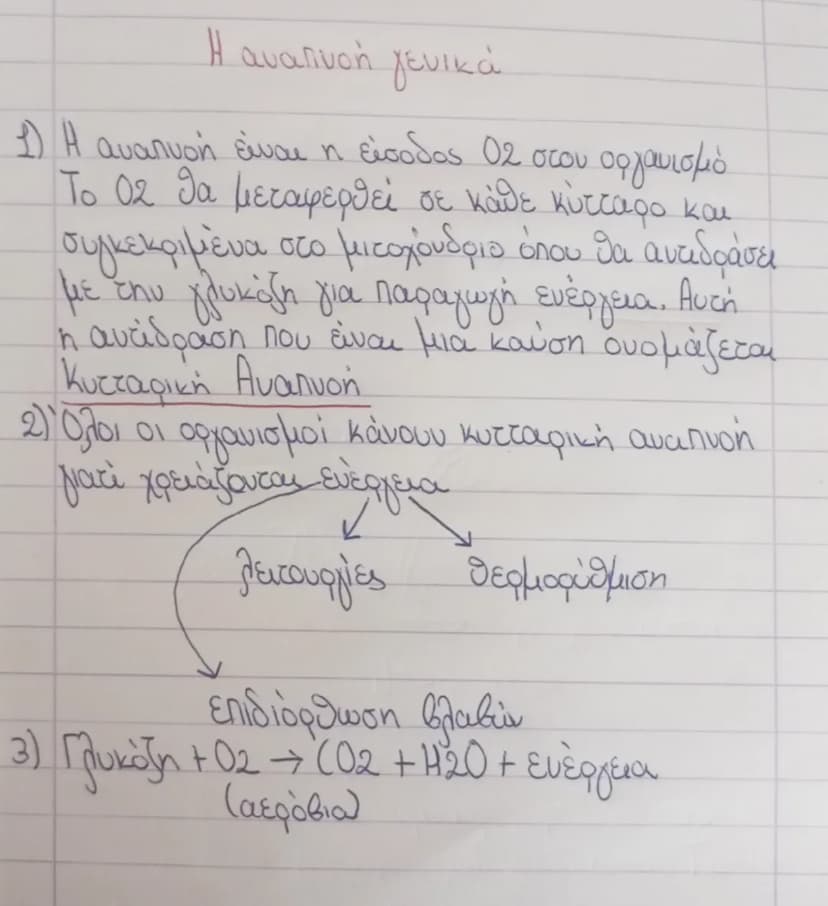 Η αναπνοή γενικά
1) Η αναπνοή είναι η είσοδος Ο2 στον οργανισμό
Το Ο2 θα μεταφερθεί σε κάθε κύτταρο και
συγκεκριμένα στο μιτοχόνδριο όπου θα αντιδράσει
με την γλυκόζη για παραγωγή ενέργεια. Αυτή
η αντίδραση που είναι μια καύση ονομάζεται
Κυτταρική Αναπνοή
2) Όλοι οι οργανισμοί κάνουν κυτταρική αναπνοή
γιατί χρειάζονται ενέργεια
λειτουργίες θερμορύθμιση
επιδιόρθωση βλαβών
3) Γλυκόζη + Ο2 → CO2 + H2O + ενέργεια
(αερόβια)